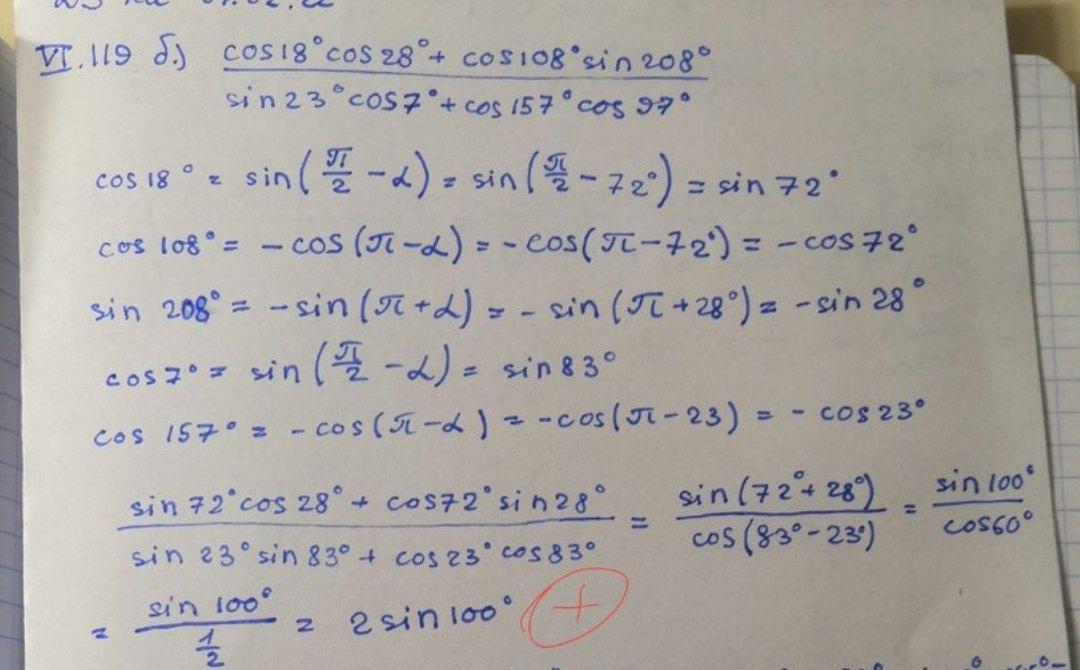 VI.119 б.) (cos18°cos28°+ cos108°sin208°)/(sin23°cos7°+cos157°cos97°)
cos18° = sin(π/2 -α) = sin(π/2 - 72°) = sin72°
cos 108° = -cos(π-α) = -cos(π-72°) = -cos72°
sin 208° = -sin(π+α) = - sin(π+28°) = -sin28°
cos7° = sin(π/2 -α) = sin83°
cos 157° = -cos(π-α) = -cos(π-23) = - cos23°
(sin72°cos28° + cos72°sin28°)/(sin 23°sin83° + cos23°cos83°) = sin(72°+28°)/cos(83°-23°) = sin100°/cos60°
= sin 100°/(1/2) = 2sin100° +